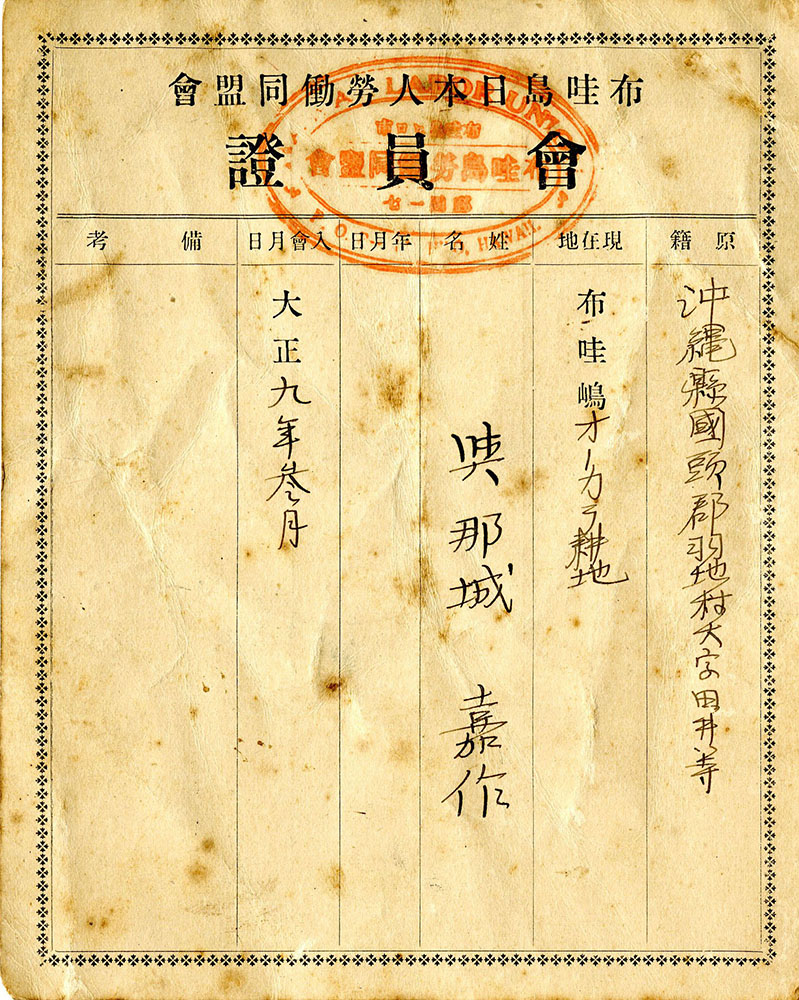 布哇島日本人勞働同盟會
會員證
LABOR UNION
布哇島勞働同盟會
HAWAII.
原籍
沖縄縣國頭郡羽地村大字田井等
現在地
布哇嶋オーカラ耕地
姓名
與那城 嘉作
年月日
入會月日
大正九年参月
備考